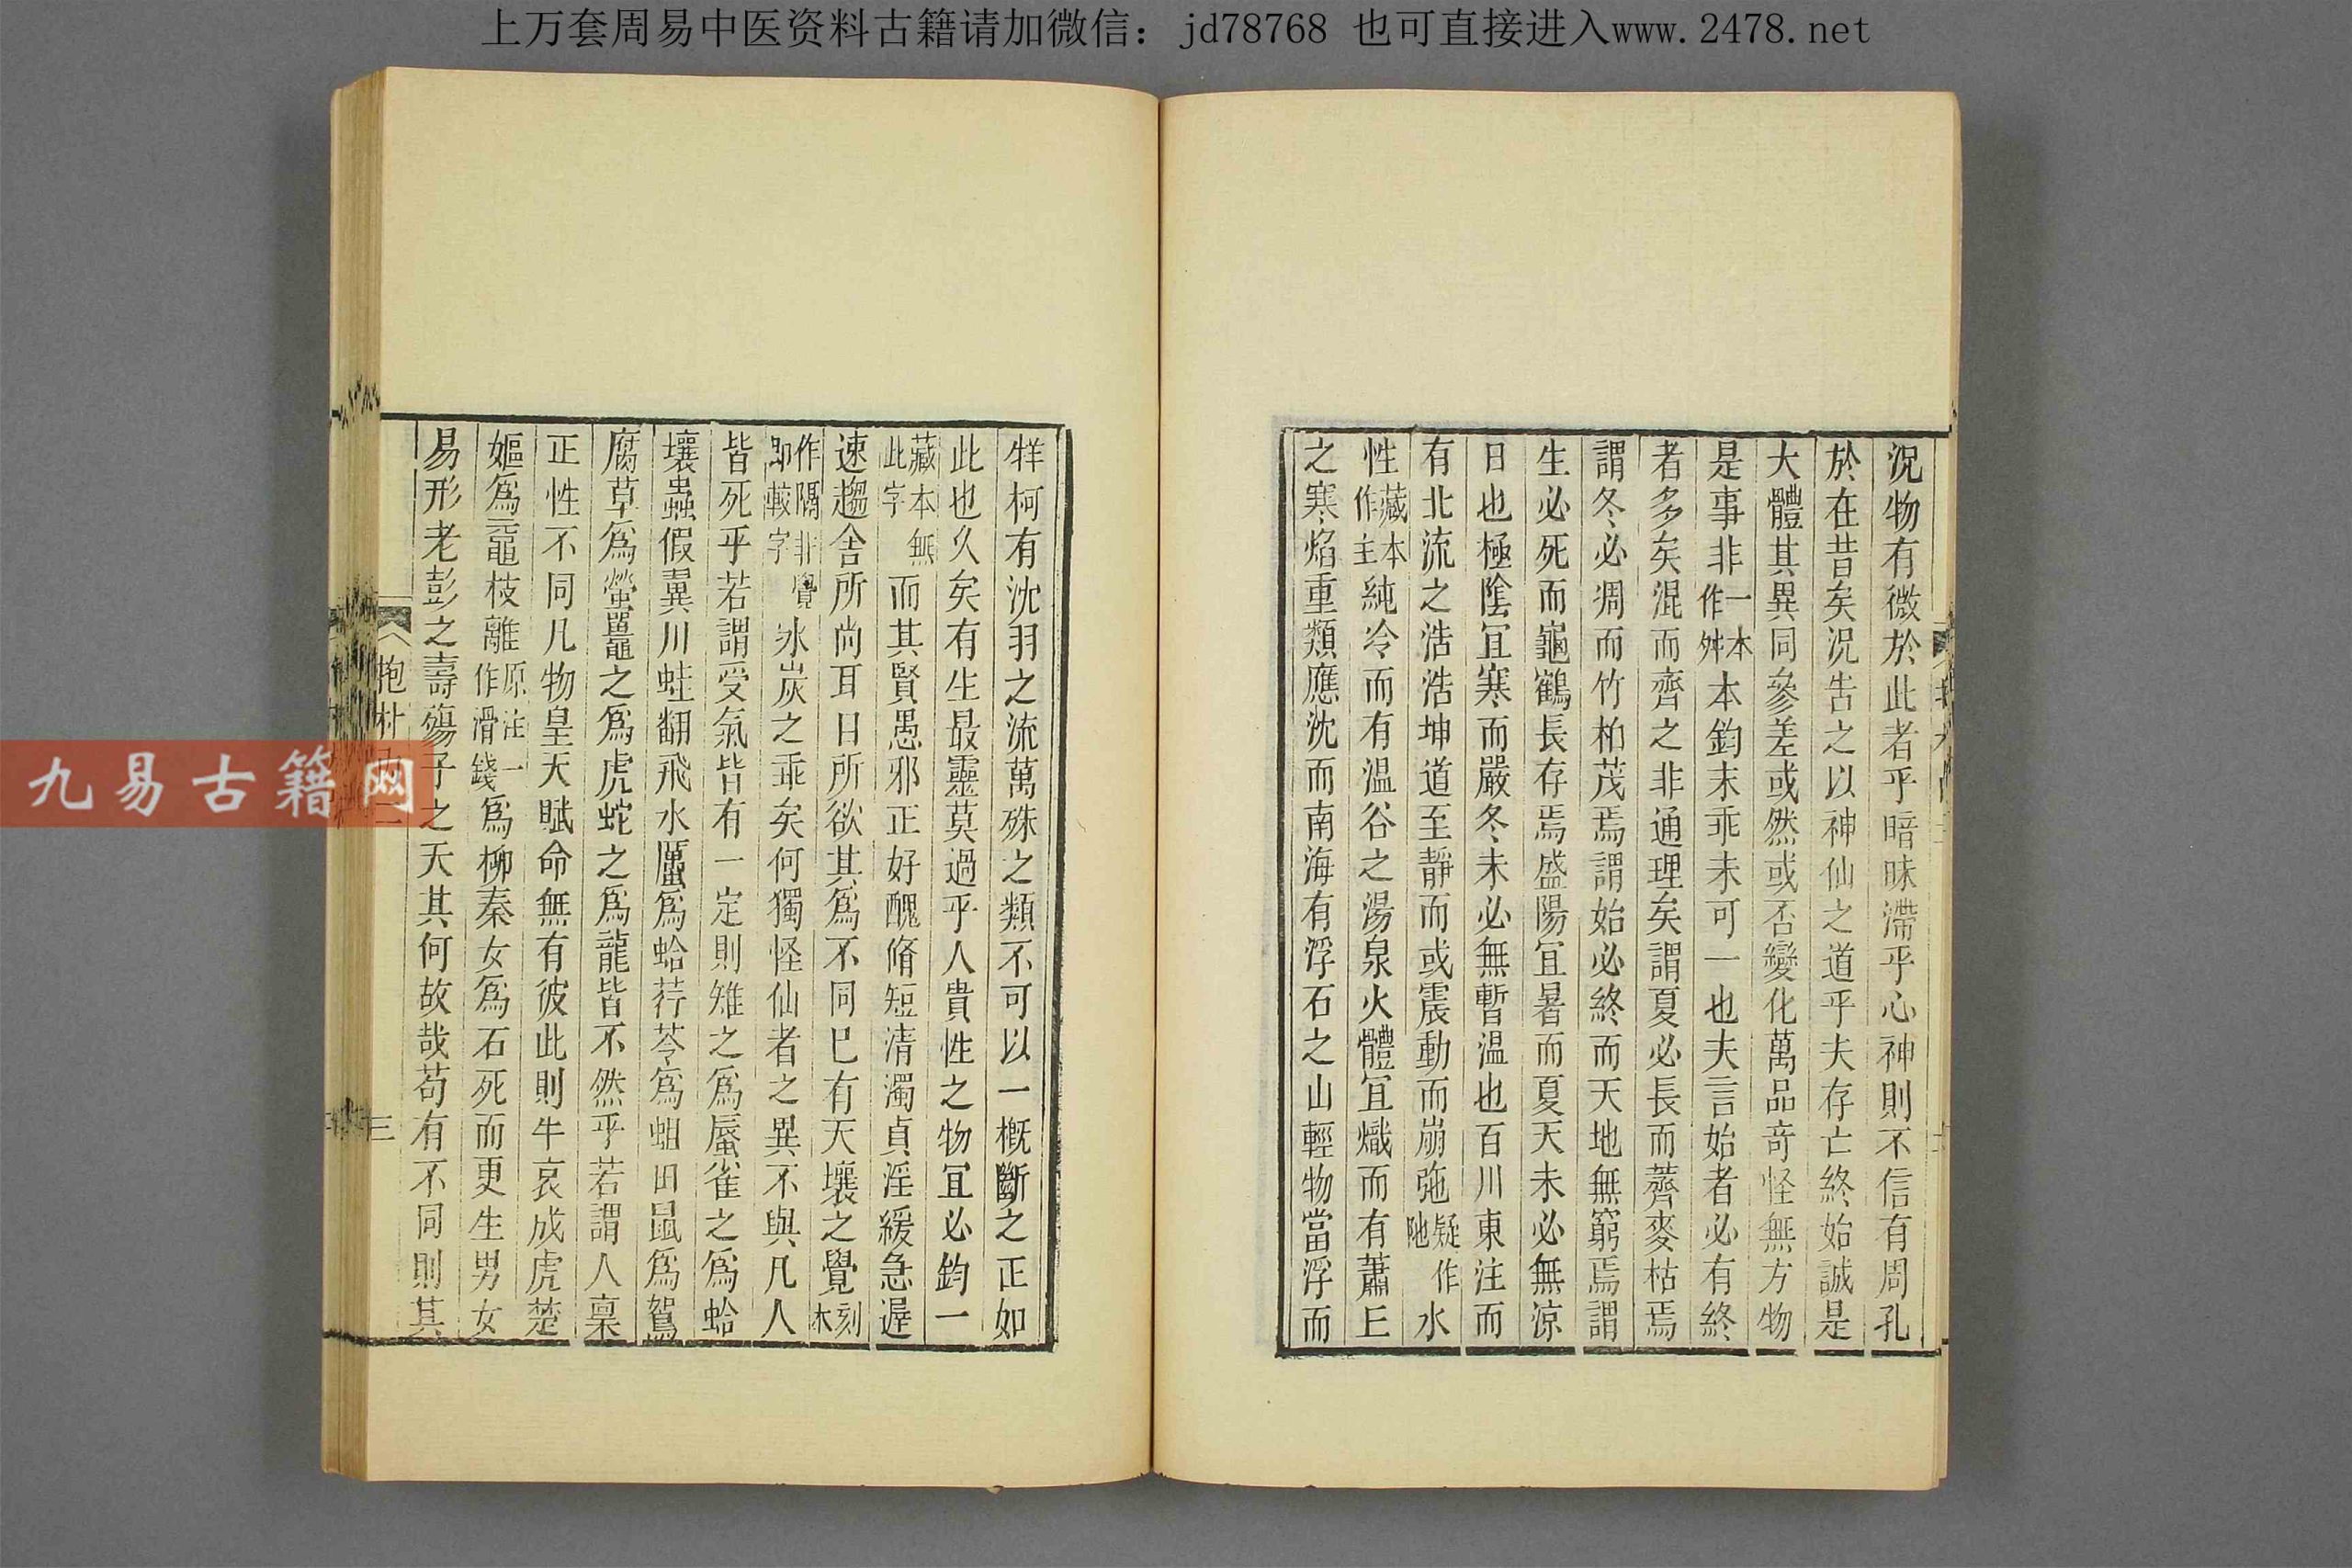 上万套周易中医资料古籍请加微信：jd78768 也可直接进入www.2478.net
況物有微於此者乎暗昧滯乎心神則不信有周孔
於在昔矣況告之以神仙之道乎夫存亡終始誠是
大體其異同參差或然或否變化萬品奇怪無方物
是事非一本作舛本鈞末乖未可一也夫言始者必有終
者多矣混而齊之非通理矣謂夏必長而薺麥枯焉
謂冬必凋而竹柏茂焉謂始必終而天地無窮焉謂
生必死而龜鶴長存焉盛陽宜暑而夏天未必無凉
日也極陰宜寒而嚴冬未必無暫温也百川東注而
有北流之浩浩坤道至靜而或震動而崩弛疑作阤水
性藏本作主純冷而有温谷之湯泉火體宜熾而有蕭丘
之寒焰重類應沈而南海有浮石之山輕物當浮而
牂柯有沈羽之流萬殊之類不可以一概斷之正如
此也久矣有生最靈莫過乎人貴性之物宜必鈞一
藏本無此字而其賢愚邪正好醜脩短清濁貞淫緩急遲
速趨舍所尚耳目所欲其為不同已有天壤之覺刻本
作隔非覺即較字冰炭之乖矣何獨怪仙者之異不與凡人
皆死乎若謂受氣皆有一定則雉之為蜃雀之為蛤
壤蟲假翼川蛙翻飛水蠣為蛤荇苓為蛆田鼠為鴽
腐草為螢鼉之為虎蛇之為龍皆不然乎若謂人稟
正性不同凡物皇天賦命無有彼此則牛哀成虎楚
嫗為黿枝離原注一作滑錢為柳秦女為石死而更生男女
易形老彭之壽殤子之夭其何故哉苟有不同則其
抱朴內二
三
九易古籍网